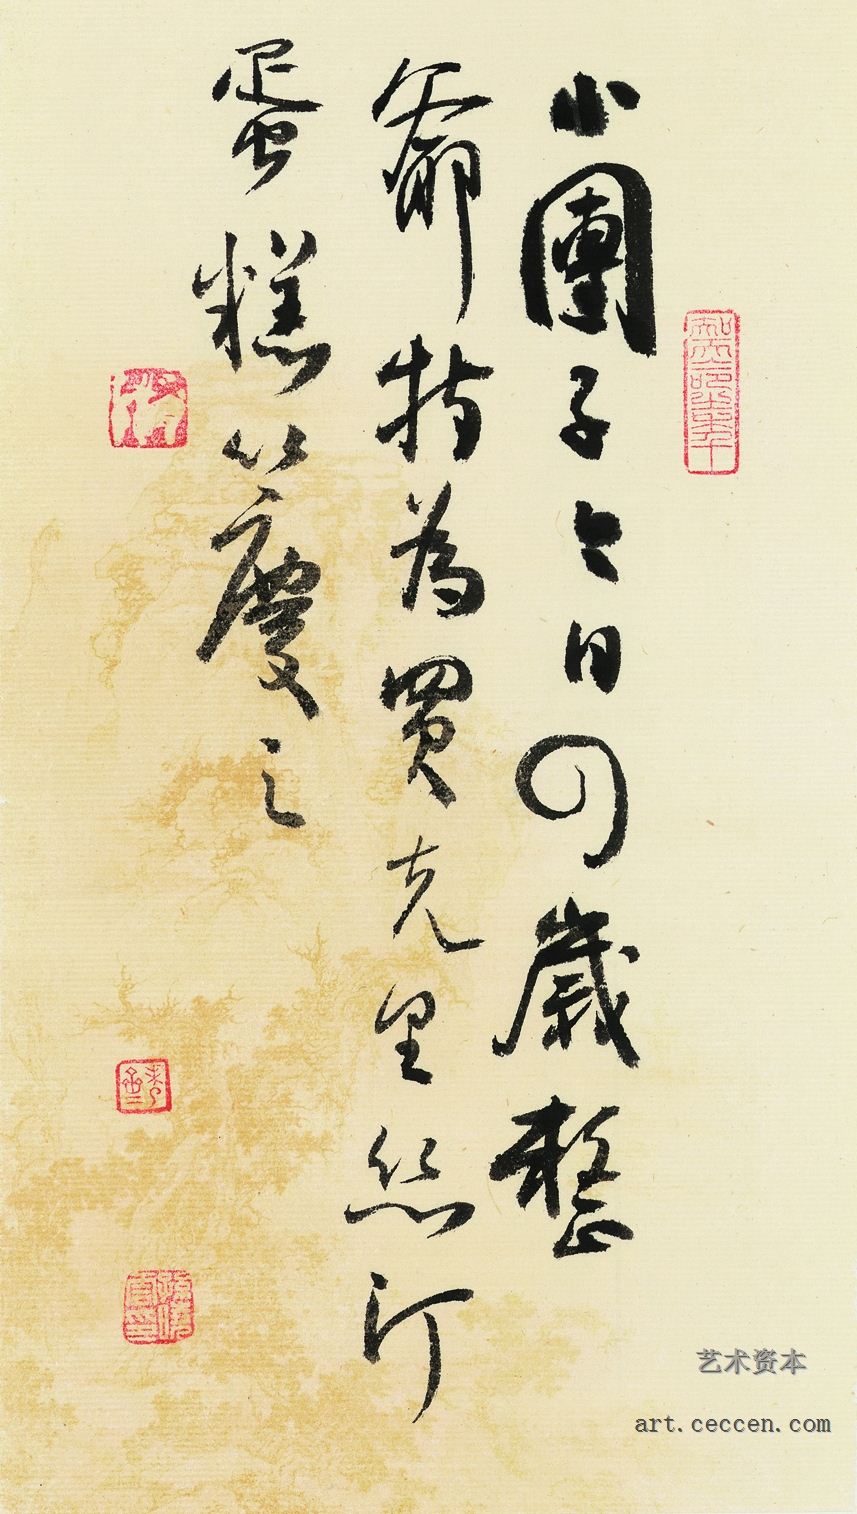 小團子今日四歲整
爺特為買克里絲汀
蛋糕以慶之
艺术资本
art.ceccen.com